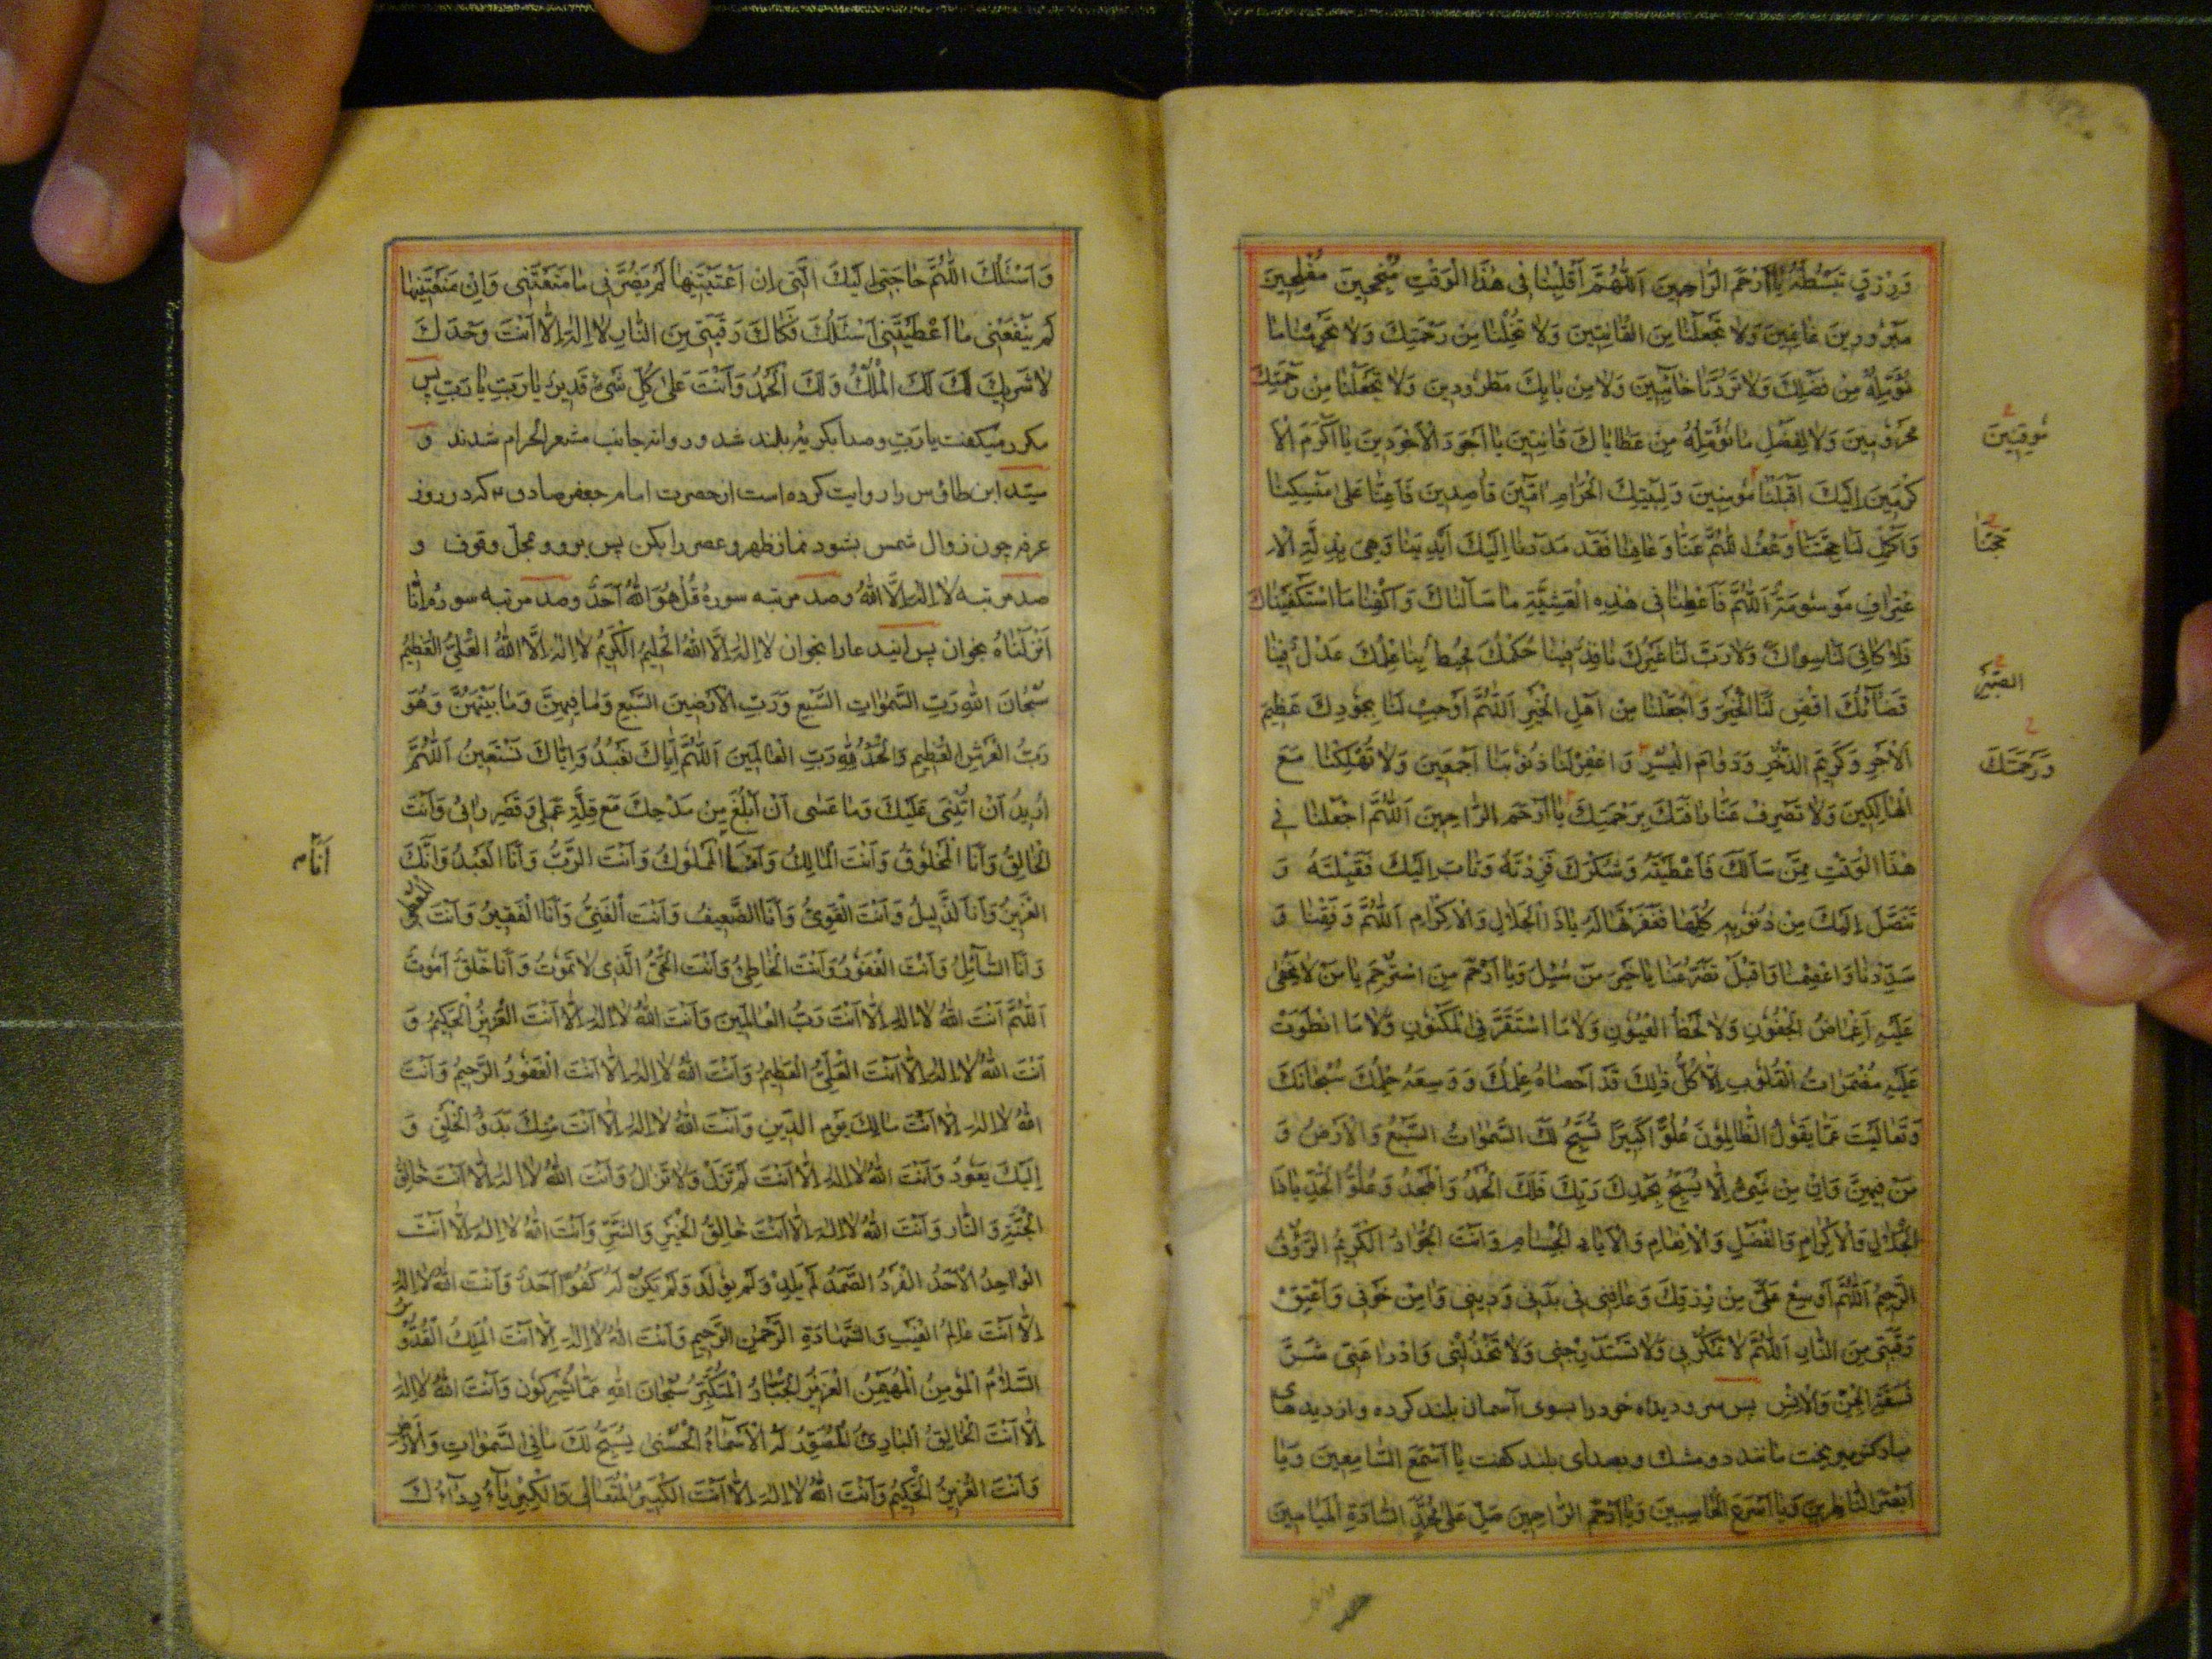 وَرِزْقٍ تَبْسُطُهُ يَا اَرْحَمَ الرَّاحِمِينَ اَللّٰهُمَّ اَقْلِبْنَا فِى هٰذَا الْوَقْتِ مُنْجِحِينَ مُفْلِحِينَ
مَبْرُورِينَ غَانِمِينَ وَلَا تَجْعَلْنَا مِنَ الْقَانِطِينَ وَلَا تُخْلِنَا مِنْ رَحْمَتِكَ وَلَا تَحْرِمْنَا مَا
نُؤَمِّلُهُ مِنْ فَضْلِكَ وَلَا تَرُدَّنَا خَائِبِينَ وَلَا مِنْ بَابِكَ مَطْرُودِينَ وَلَا تَجْعَلْنَا مِنْ رَحْمَتِكَ
مَحْرُومِينَ وَلَا لِفَضْلِ مَا نُؤَمِّلُهُ مِنْ عَطَايَاكَ قَانِطِينَ يَا اَجْوَدَ الْاَجْوَدِينَ يَا اَكْرَمَ الْاَ
كْرَمِينَ اِلَيْكَ اَقْبَلْنَا مُؤْمِنِينَ وَلِبَيْتِكَ الْحَرَامِ اٰمِّينَ قَاصِدِينَ فَاَعِنَّا عَلىٰ مَنْسِكِنَا
مُوقِنِينَ
وَاَكْمِلْ لَنَا حَجَّتَنَا وَعْفُ اللّٰهُمَّ عَنَّا وَعَافِنَا فَقَدْ مَدَدْنَا اِلَيْكَ اَيْدِيَنَا وَهِىَ بِذِلَّةِ الْاِ
حَجَّنَا
عْتِرَافِ مَوْسُومَةٌ اَللّٰهُمَّ فَاَعْطِنَا فِى هٰذِهِ الْعَشِيَّةِ مَا سَاَلْنَاكَ وَاكْفِنَا مَا اسْتَكْفَيْنَاكَ
فَلَا كَافِىَ لَنَا سِوَاكَ وَلَا رَبَّ لَنَا غَيْرُكَ نَافِذٌ فِينَا حُكْمُكَ مُحِيطٌ بِنَا عِلْمُكَ عَدْلٌ فِينَا
قَضَاۤئُكَ اقْضِ لَنَا الْخَيْرَ وَاجْعَلْنَا مِنْ اَهْلِ الْخَيْرِ اَللّٰهُمَّ اَوْجِبْ لَنَا بِجُودِكَ عَظِيمَ
الْاَجْرِ وَكَرِيمَ الذُّخْرِ وَدَوَامَ الْيُسْرِ وَاغْفِرْ لَنَا ذُنُوبَنَا اَجْمَعِينَ وَلَا تُهْلِكْنَا مَعَ
وَرَحْمَتَكَ
الْهَالِكِينَ وَلَا تَصْرِفْ عَنَّا رَافَتَكَ بِرَحْمَتِكَ يَا اَرْحَمَ الرَّاحِمِينَ اَللّٰهُمَّ اجْعَلْنَا فِى
هٰذَا الْوَقْتِ مِمَّنْ سَاَلَكَ فَاَعْطَيْتَهُ وَشَكَرَكَ فَزِدْتَهُ وَتَابَ اِلَيْكَ فَقَبِلْتَهُ وَ
تَنَصَّلَ اِلَيْكَ مِنْ ذُنُوبِهِ كُلِّهَا فَغَفَرْتَهَا لَهُ يَاذَا الْجَلَالِ وَالْاِكْرَامِ اَللّٰهُمَّ وَفِّقْنَا وَ
سَدِّدْنَا وَاعْصِمْنَا وَاقْبَلْ تَضَرُّعَنَا يَا خَيْرَ مَنْ سُئِلَ وَيَا اَرْحَمَ مَنِ اسْتُرْحِمَ يَا مَنْ لَا يَخْفىٰ
عَلَيْهِ اِغْمَاضُ الْجُفُونِ وَلَا لَحْظُ الْعُيُونِ وَلَا مَا اسْتَقَرَّ فِى الْمَكْنُونِ وَلَا مَا انْطَوَتْ
عَلَيْهِ مُضْمَرَاتُ الْقُلُوبِ اِلَّا كُلُّ ذٰلِكَ قَدْ اَحْصَاهُ عِلْمُكَ وَوَسِعَهُ حِلْمُكَ سُبْحَانَكَ
وَتَعَالَيْتَ عَمَّا يَقُولُ الظَّالِمُونَ عُلُوًّا كَبِيرًا تُسَبِّحُ لَكَ السَّمٰوَاتُ السَّبْعُ وَالْاَرْضُ وَ
مَنْ فِيهِنَّ وَاِنْ مِنْ شَىْءٍ اِلَّا يُسَبِّحُ بِحَمْدِكَ رَبِّكَ فَلَكَ الْحَمْدُ وَالْمَجْدُ وَعُلُوُّ الْجَدِّ يَاذَا
الْجَلَالِ وَالْاِكْرَامِ وَالْفَضْلِ وَالْاِنْعَامِ وَالْاَيَادِ الْجِسَامِ وَاَنْتَ الْجَوَادُ الْكَرِيمُ الرَّؤُفُ
الرَّحِيمُ اَللّٰهُمَّ اَوْسِعْ عَلَىَّ مِنْ رِزْقِكَ وَعَافِنِى فِى بَدَنِى وَدِينِى وَاٰمِنْ خَوْفِى وَاَعْتِقْ
رَقَبَتِى مِنَ النَّارِ اَللّٰهُمَّ لَا تَمْكُرْ بِى وَلَا تَسْتَدْرِجْنِى وَلَا تَخْذُلْنِى وَادْرَا عَنِّى شَرَّ
فَسَقَةِ الْجِنِّ وَالْاِنْسِ پس سر و دیده خود را بسوی آسمان بلند کرده و از دیده‌های
مبارکش میریخت مانند دو مشک و بصدای بلند کفت يَا اَسْمَعَ السَّامِعِينَ وَيَا
اَبْصَرَ النَّاظِرِينَ وَيَا اَسْرَعَ الْحَاسِبِينَ وَيَا اَرْحَمَ الرَّاحِمِينَ صَلِّ عَلىٰ مُحَمَّدٍ السَّادَةِ الْمَيَامِينَ
وَاَسْئَلُكَ اللّٰهُمَّ حَاجَتِى اِلَيْكَ الَّتِى اِنْ اَعْطَيْتَنِيهَا لَمْ يَضُرَّنِى مَا مَنَعْتَنِى وَاِنْ مَنَعْتَنِيهَا
لَمْ يَنْفَعْنِى مَا اَعْطَيْتَنِى اَسْئَلُكَ فَكَاكَ رَقَبَتِى مِنَ النَّارِ لَا اِلٰهَ اِلَّا اَنْتَ وَحْدَكَ
لَا شَرِيكَ لَكَ لَكَ الْمُلْكُ وَلَكَ الْحَمْدُ وَاَنْتَ عَلىٰ كُلِّ شَىْءٍ قَدِيرٌ يَا رَبِّ يَا رَبِّ پس
مکرر میکفت یا رَبِّ و صدا بکریه بلند شد و روانه جانب مشعر الحرام شدند و
سیّد ابن طاوٗس را روایت کرده است از حضرت امام جعفر صادق ۴ که در روز
عرفه چون زوال شمس بشود نماز ظهر و عصر را بکن پس برو و بمحلّ وقوف و
صد مرتبه لَا اِلٰهَ اِلَّا اللّٰهُ و صد مرتبه سوره قُلْ هُوَ اللّٰهُ اَحَدٌ و صد مرتبه سوره اِنَّا
اَنْزَلْنَاهُ بخوان پس اینید عا را بخوان لَا اِلٰهَ اِلَّا اللّٰهُ الْحَلِيمُ الْكَرِيمُ لَا اِلٰهَ اِلَّا اللّٰهُ الْعَلِىُّ الْعَظِيمُ
سُبْحَانَ اللّٰهِ رَبِّ السَّمٰوَاتِ السَّبْعِ وَرَبِّ الْاَرَضِينَ السَّبْعِ وَمَا فِيهِنَّ وَمَا بَيْنَهُنَّ وَهُوَ
رَبُّ الْعَرْشِ الْعَظِيمِ وَالْحَمْدُ لِلّٰهِ رَبِّ الْعَالَمِينَ اَللّٰهُمَّ اِيَّاكَ نَعْبُدُ وَاِيَّاكَ نَسْتَعِينُ اَللّٰهُمَّ
اُرِيدُ اَنْ اُثْنِىَ عَلَيْكَ وَمَا عَسٰى اَنْ اَبْلُغَ مِنْ مَدْحِكَ مَعَ قِلَّةِ عَمَلِى وَقَصْرِ رَايِى وَاَنْتَ
الْخَالِقُ وَاَنَا الْمَخْلُوقُ وَاَنْتَ الْمَالِكُ وَاَنَا الْمَمْلُوكُ وَاَنْتَ الرَّبُّ وَاَنَا الْعَبْدُ وَاِنَّكَ
اَنَا
الْعَزِيزُ وَاَنَا لذَّلِيلُ وَاَنْتَ الْقَوِىُّ وَاَنَا الضَّعِيفُ وَاَنْتَ الْغَنِىُّ وَاَنَا الْفَقِيرُ وَاَنْتَ الْمُعْطِى
وَاَنَا السَّائِلُ وَاَنْتَ الْغَفُورُ وَاَنْتَ الْخَاطِئُ وَاَنْتَ الْحَىُّ الَّذِى لَا تَمُوتُ وَاَنَا خَلْقٌ اَمُوتُ
اَللّٰهُمَّ اَنْتَ اللّٰهُ لَا اِلٰهَ اِلَّا اَنْتَ رَبُّ الْعَالَمِينَ وَاَنْتَ اللّٰهُ لَا اِلٰهَ اِلَّا اَنْتَ الْعَزِيزُ الْحَكِيمُ وَ
اَنْتَ اللّٰهُ لَا اِلٰهَ اِلَّا اَنْتَ الْعَلِىُّ الْعَظِيمُ وَاَنْتَ اللّٰهُ لَا اِلٰهَ اِلَّا اَنْتَ الْغَفُورُ الرَّحِيمُ وَاَنْتَ
اللّٰهُ لَا اِلٰهَ اِلَّا اَنْتَ مَالِكَ يَوْمِ الدِّينِ وَاَنْتَ اللّٰهُ لَا اِلٰهَ اِلَّا اَنْتَ مِنْكَ بَدْوُ الْخَلْقِ وَ
اِلَيْكَ يَعُودُ وَاَنْتَ اللّٰهُ لَا اِلٰهَ اِلَّا اَنْتَ لَمْ تَزَلْ وَلَا تَزَالُ وَاَنْتَ اللّٰهُ لَا اِلٰهَ اِلَّا اَنْتَ خَالِقُ
الْجَنَّةِ وَالنَّارِ وَاَنْتَ اللّٰهُ لَا اِلٰهَ اِلَّا اَنْتَ خَالِقُ الْخَيْرِ وَالشَّرِّ وَاَنْتَ اللّٰهُ لَا اِلٰهَ اِلَّا اَنْتَ
الْوَاحِدُ الْاَحَدُ الْفَرْدُ الصَّمَدُ لَمْ يَلِدْ وَلَمْ يُولَدْ وَلَمْ يَكُنْ لَهُ كُفُوًا اَحَدٌ وَاَنْتَ اللّٰهُ لَا اِلٰهَ
اِلَّا اَنْتَ عَالِمُ الْغَيْبِ وَالشَّهَادَةِ الرَّحْمٰنِ الرَّحِيمِ وَاَنْتَ اللّٰهُ لَا اِلٰهَ اِلَّا اَنْتَ الْمَلِكُ الْقُدُّوسُ
السَّلَامُ الْمُؤْمِنُ الْمُهَيْمِنُ الْعَزِيزُ الْجَبَّارُ الْمُتَكَبِّرُ سُبْحَانَ اللّٰهِ عَمَّا يُشْرِكُونَ وَاَنْتَ اللّٰهُ لَا اِلٰهَ
اِلَّا اَنْتَ الْخَالِقُ الْبَارِئُ الْمُصَوِّرُ لَهُ الْاَسْمَاءُ الْحُسْنىٰ يُسَبِّحُ لَكَ مَا فِى السَّمٰوَاتِ وَالْاَرْضِ
وَاَنْتَ الْعَزِيزُ الْحَكِيمُ وَاَنْتَ اللّٰهُ لَا اِلٰهَ اِلَّا اَنْتَ الْكَبِيرُ الْمُتَعَالِى وَالْكِبْرِيَاۤءُ رِدَاۤءُكَ